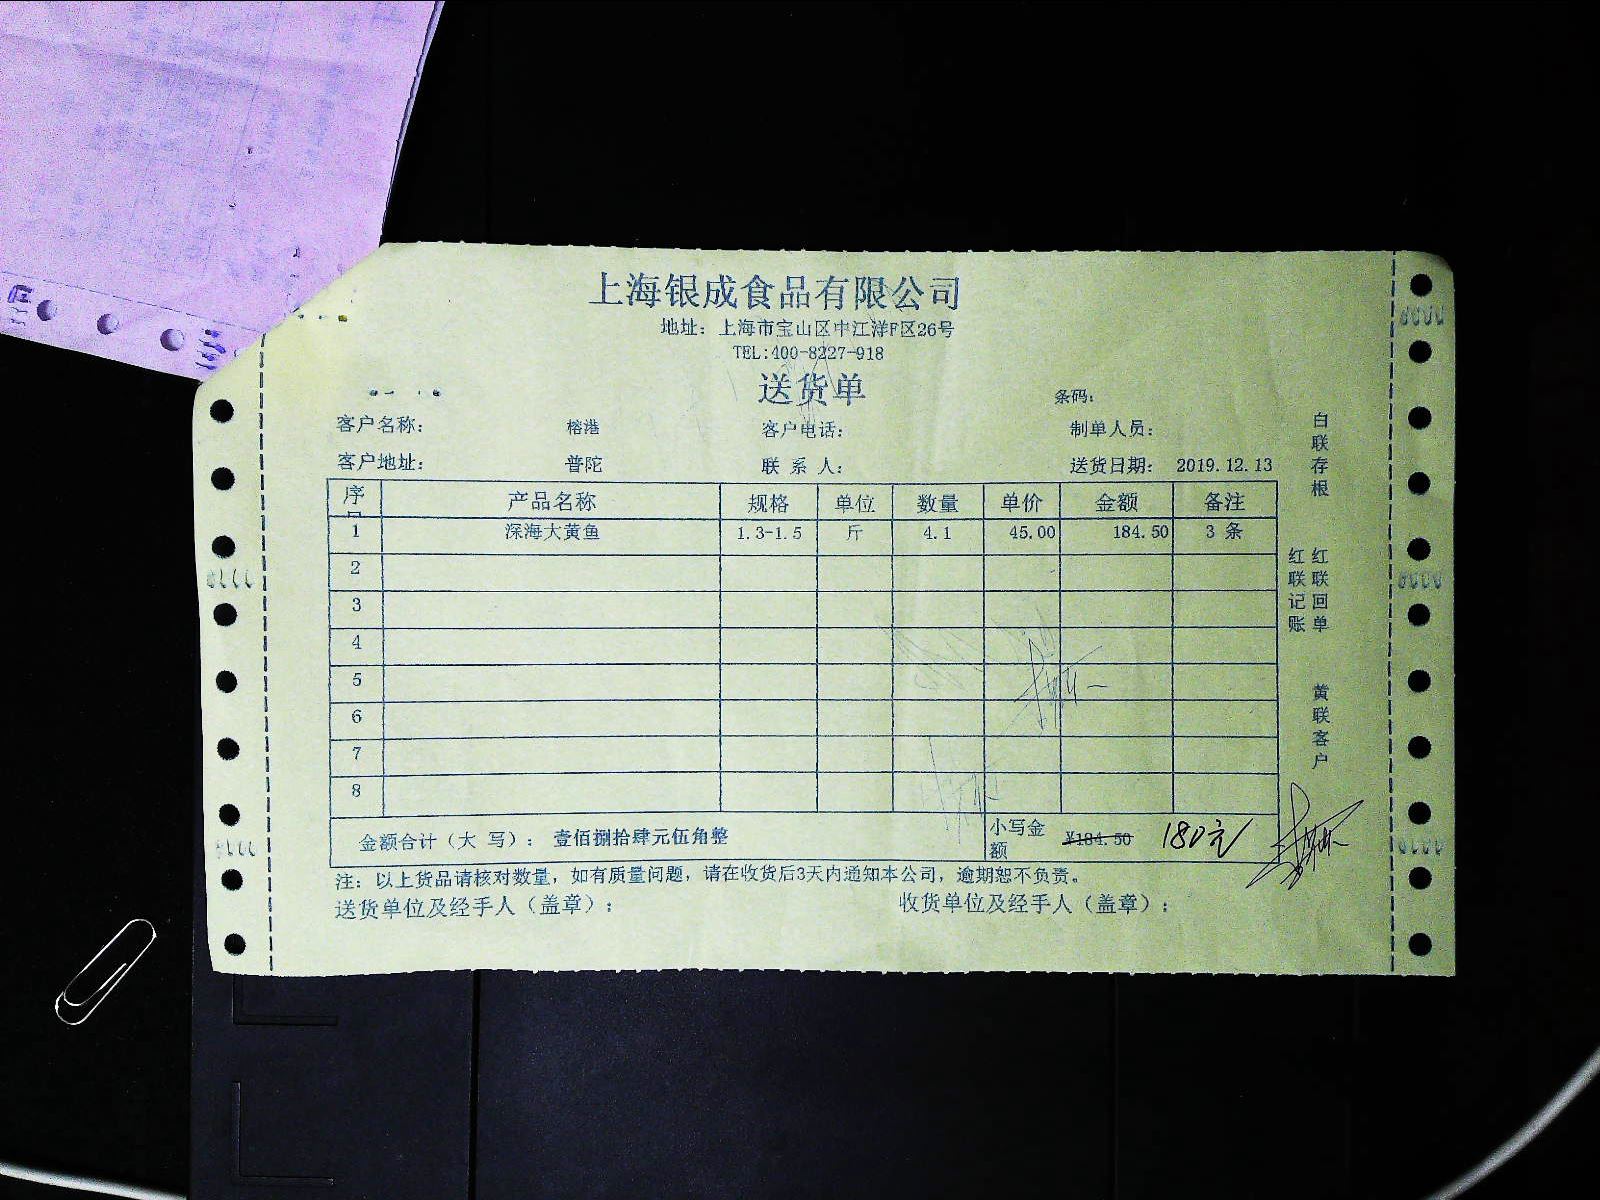 上海银成食品有限公司
地址：上海市宝山区中江洋F区26号
TEL:400-8227-918
送货单
条码：
客户名称： 榕港 客户电话： 制单人员：
客户地址： 普陀 联系人： 送货日期： 2019.12.13
序 产品名称 规格 单位 数量 单价 金额 备注
1 深海大黄鱼 1.3-1.5 斤 4.1 45.00 184.50 3 条
2
3
4
5
6
7
8
金额合计（大 写）： 壹佰捌拾肆元伍角整 小写金额 ¥184.50 180元
注：以上货品请核对数量，如有质量问题，请在收货后3天内通知本公司，逾期恕不负责。
送货单位及经手人（盖章）： 收货单位及经手人（盖章）：
白联存根
红联回单
红联记账
黄联客户